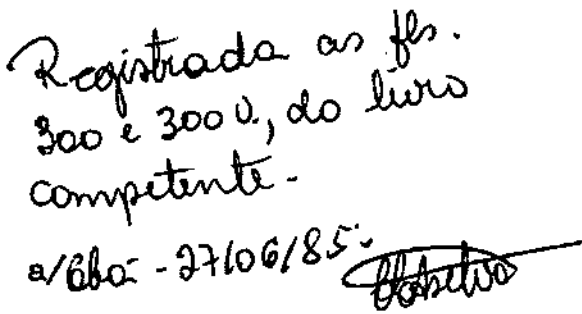 Registrada as fls.
300 e 300 v., do livro
competente.
27/06/85.